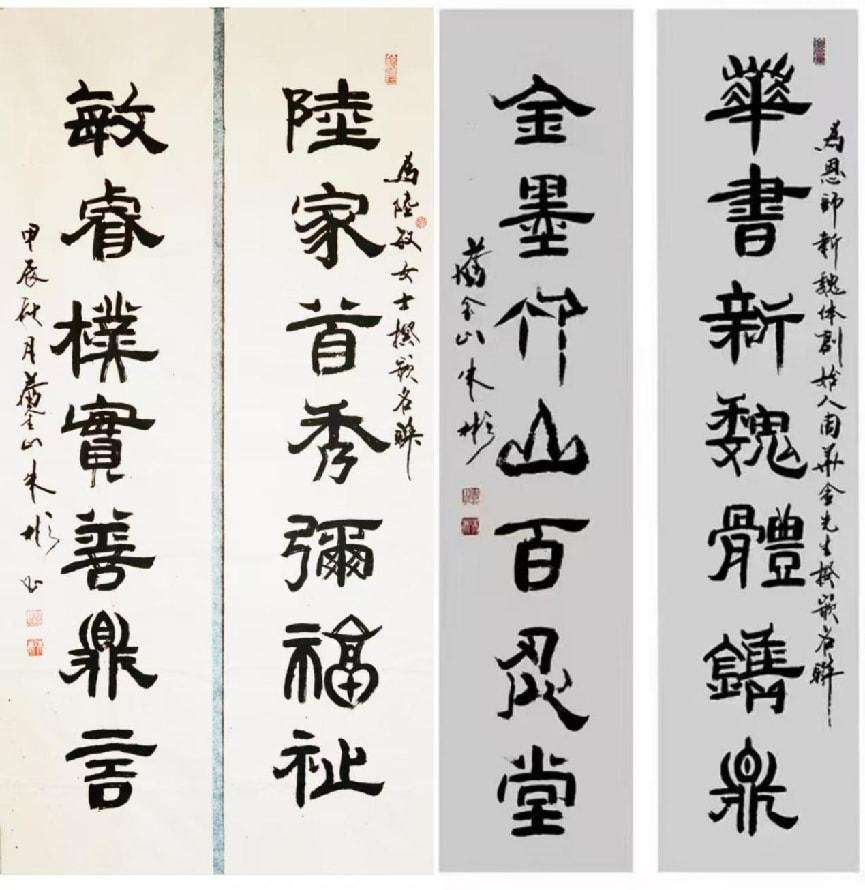 為恩師新魏体創始人周華金先生撰嵌名聯
華書新魏體鐫鼎
金墨竹山百忍堂
舊金山朱彬
為陸敏女士撰嵌名聯
陸家首秀彌福祉
敏睿樸實善鼎言
甲辰秋月舊金山朱彬書